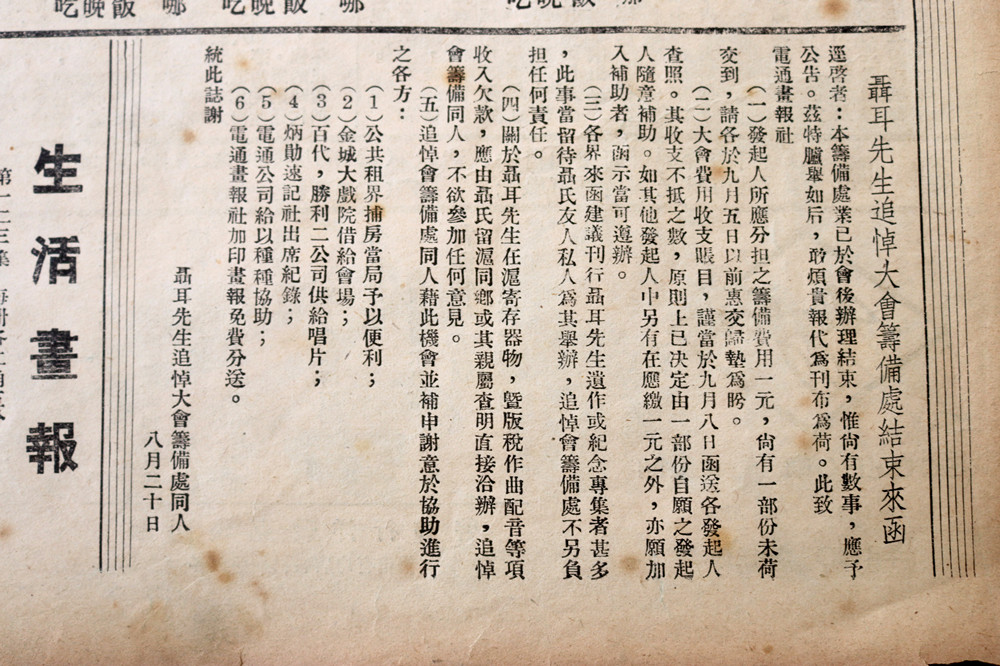 吃晚飯 哪
吃晚飯 哪
聶耳先生追悼大會籌備處結束來函
逕啓者：本籌備處業已於會後辦理結束，惟尙有數事，應予
公告。茲特臚舉如后，敢煩貴報代爲刊布爲荷。此致
電通畫報社
（一）發起人所應分担之籌備費用一元，尙有一部份未荷
交到，請各於九月五日以前惠交歸墊爲盻。
（二）大會費用收支賬目，謹當於九月八日函送各發起人
查照。其收支不抵之數，原則上已決定由一部份自願之發起
人隨意補助。如其他發起人中另有在應繳一元之外，亦願加
入補助者，函示當可遵辦。
（三）各界來函建議刊行聶耳先生遺作或紀念專集者甚多
，此事當留待聶氏友人私人爲其舉辦，追悼會籌備處不另負
担任何責任。
（四）關於聶耳先生在滬寄存器物，曁版稅作曲配音等項
收入欠款，應由聶氏留滬同鄉或其親屬查明直接洽辦，追悼
會籌備同人，不欲參加任何意見。
（五）追悼會籌備處同人藉此機會並補申謝意於協助進行
之各方：
（1）公共租界捕房當局予以便利；
（2）金城大戲院借給會場；
（3）百代，勝利二公司供給唱片；
（4）炳勛速記社出席紀錄；
（5）電通公司給以種種協助；
（6）電通畫報社加印畫報免費分送。
統此誌謝
聶耳先生追悼大會籌備處同人
八月二十日
生活畫報